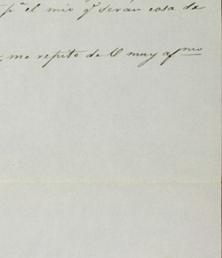 pª el mio qᵉ serán cosa de
me repito de U muy afmo